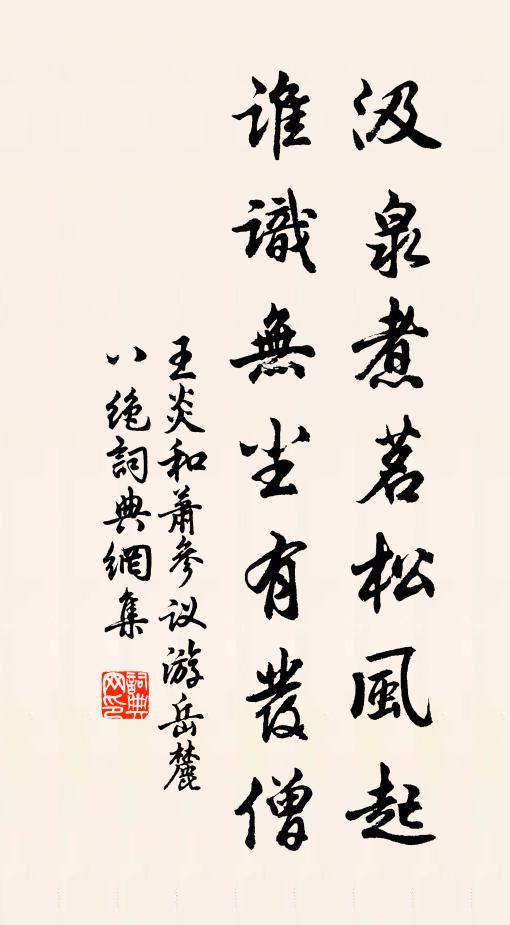 汲泉煮茗松風起
誰識無尘有發僧
王炎和蕭參议游岳麓
八绝詞典網集
詞典网印